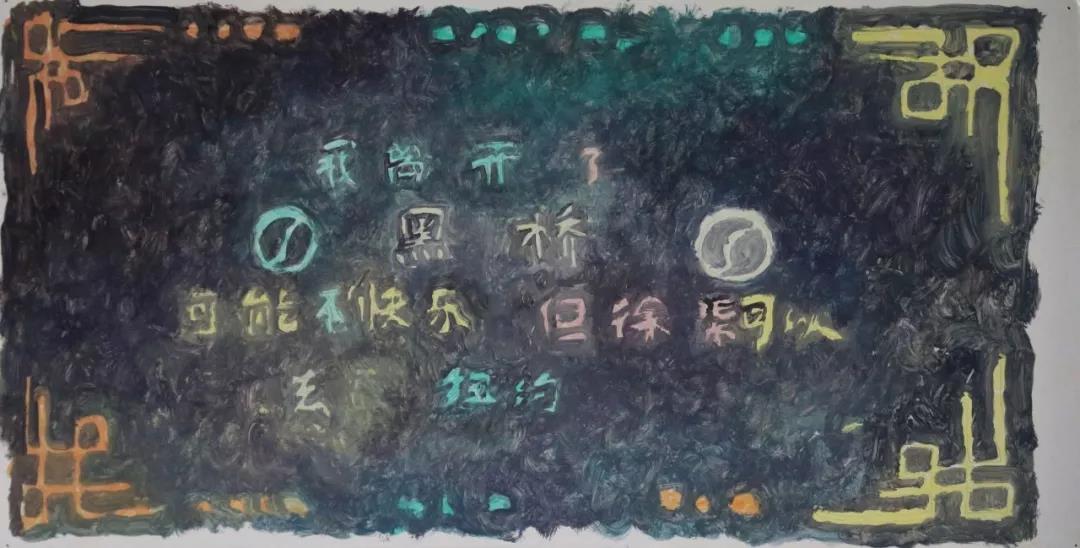 我离开了
黑 桥
可能不快乐 但徐渠可以
去 纽约